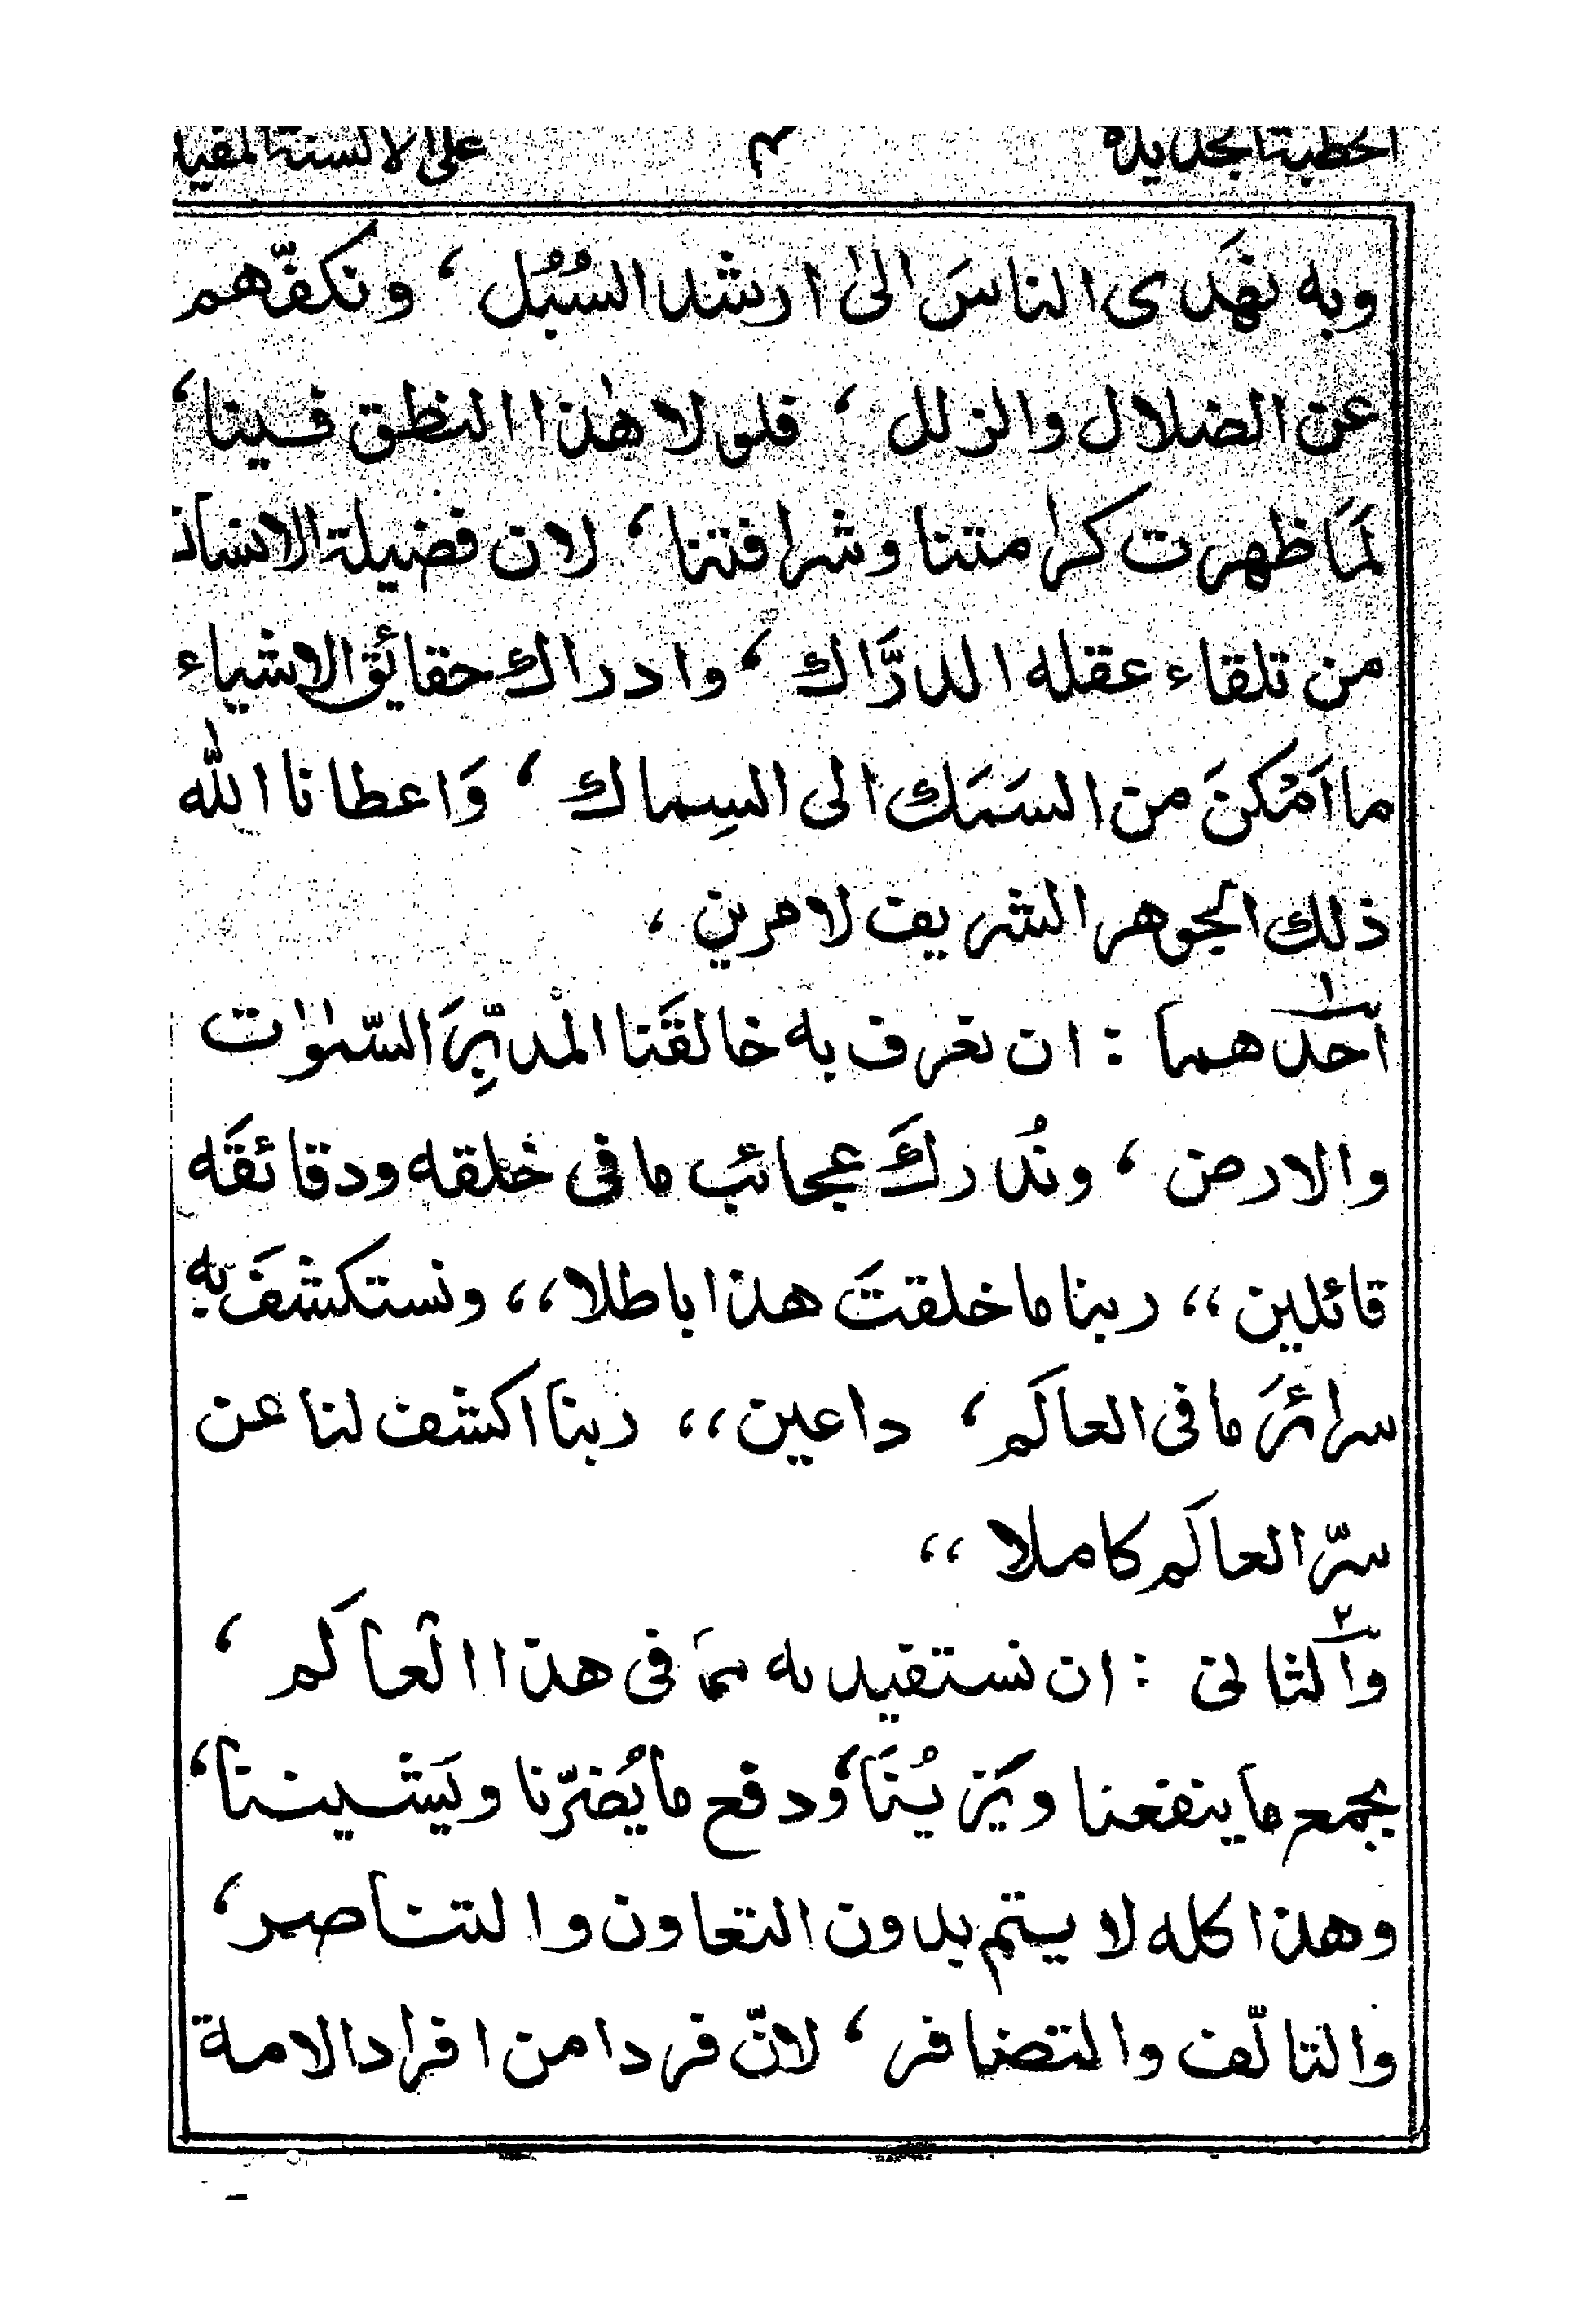 الخطبة الجديدة ٣ على الالسنة المفيد
وبه نهَدى الناسَ الىٰ ارشد السُبُل ، ونكفّهم
عن الضلال والزلل ، فلولا هٰذا النطق فينا ،
لَمَا ظهرت كرامتنا وشرافتنا ، لان فضيلة الانسان
من تلقاء عقله الدرَّاك ، وادراك حقائق الاشياء
ما اَمْكنَ من السَمَك الى السِماك ، وَاعطانا اللّٰه
ذلك الجوهر الشريف لامرين ،
١ اَحَدهما : ان نعرف به خالقَنا المْدبِّرَ السّمٰوٰت
والارض ، ونُدركَ عجائب ما فى خلقه ودقائقَه
قائلين ،، ربنا ما خلقتَ هذا باطلا ،، ونستكشفَ به
سرائرَ ما فى العالَم ، داعين ،، ربنا اكشف لنا عن
سرّ العالَم كاملا ،،
٢ والثانى : ان نستفيد به مما فى هذا العالَم ،
بجمع ما ينفعنا ويَزيُنَا ، ودفع ما يُضرّنا ويَشيننا ،
وهذا كله لا يتم بدون التعاون والتناصر ،
والتالّف والتضافر ، لانّ فردا من افراد الامة